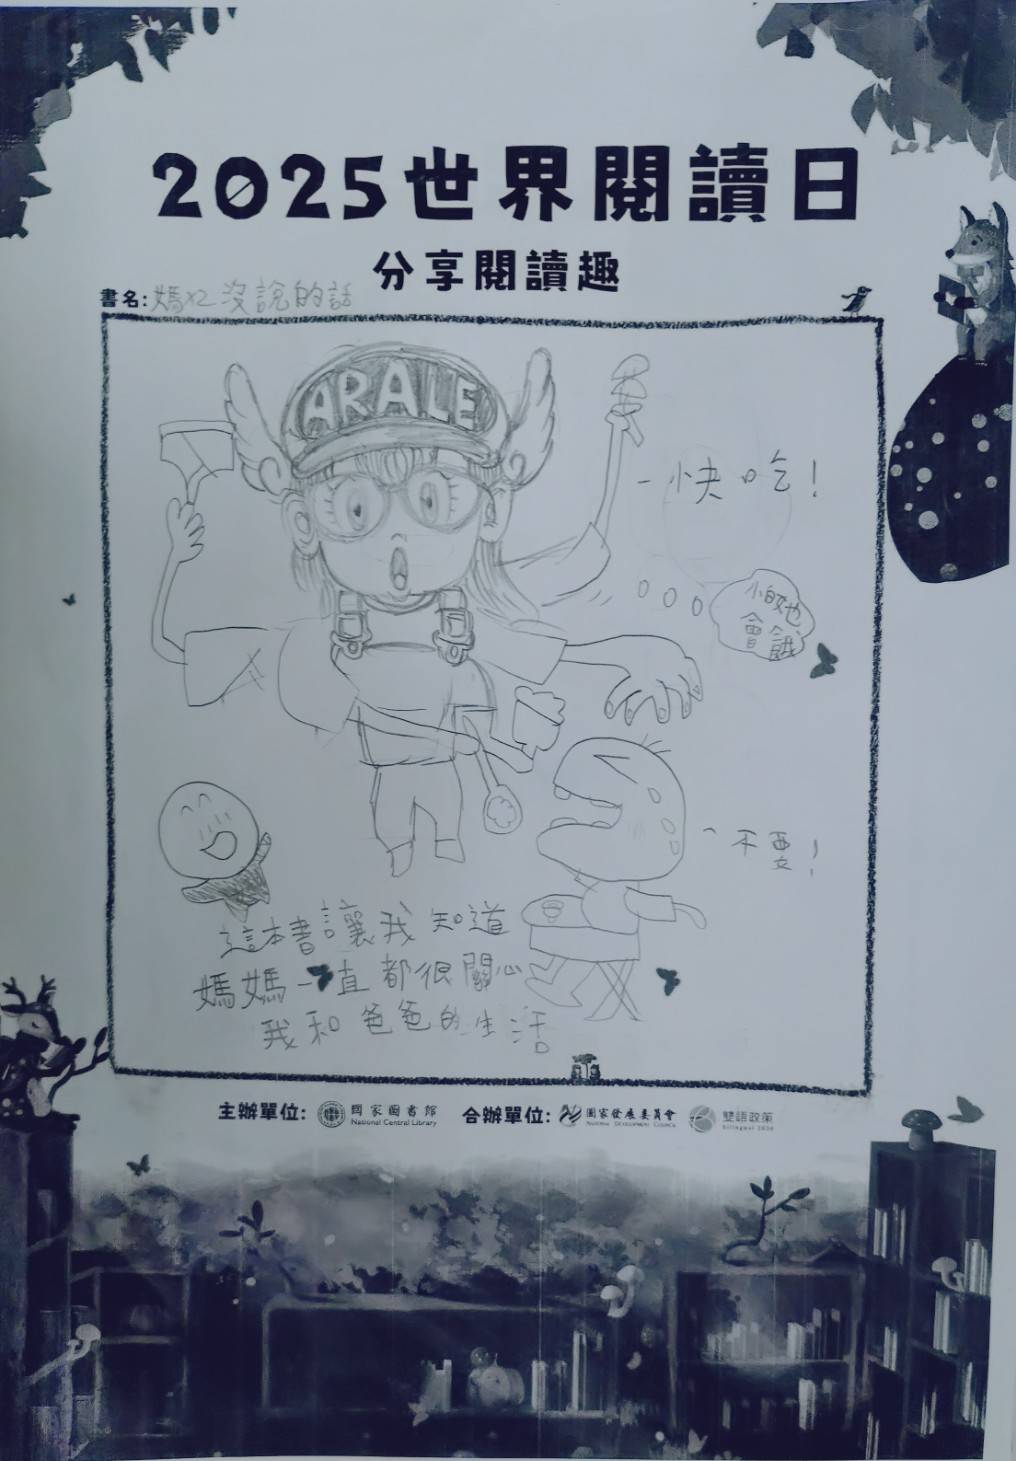 2025世界閱讀日
分享閱讀趣
書名:媽x2沒說的話
ARALE
快吃!
會餓
不要!
這本書讓我知道
媽媽一直都很關心
我和爸爸的生活
主辦單位: 國家圖書館 National Central Library 合辦單位: 國家發展委員會 NATIONAL DEVELOPMENT COUNCIL 雙語政策 bilingual 2030